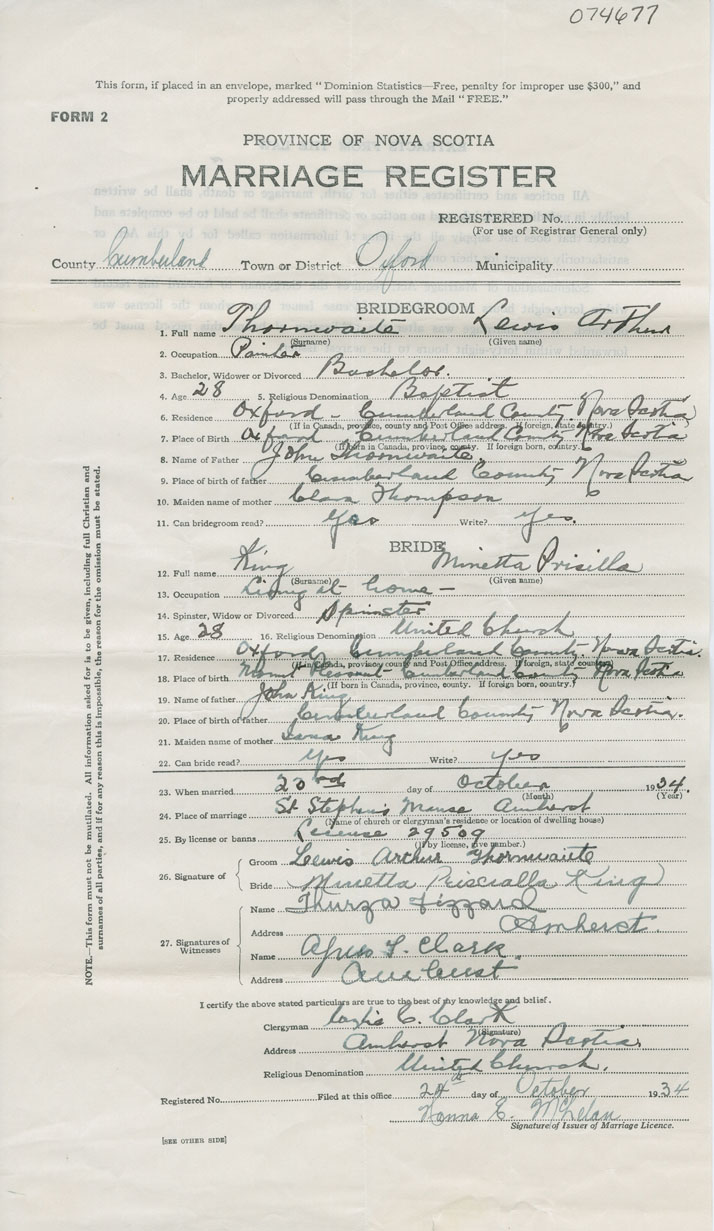 074677
This form, if placed in an envelope, marked "Dominion Statistics—Free, penalty for improper use $300," and
properly addressed will pass through the Mail "FREE."
FORM 2
PROVINCE OF NOVA SCOTIA
MARRIAGE REGISTER
REGISTERED No.
(For use of Registrar General only)
County Cumberland Town or District Oxford Municipality
BRIDEGROOM
1. Full name Thornwaite Lewis Arthur
(Surname) (Given name)
2. Occupation Painter
3. Bachelor, Widower or Divorced Bachelor.
4. Age 28 5. Religious Denomination Baptist
6. Residence Oxford - Cumberland County. Nova Scotia
(If in Canada, province, county and Post Office address. If foreign, state country.)
7. Place of Birth Oxford Cumberland County Nova Scotia
(If born in Canada, province, county. If foreign born, country.)
8. Name of Father John Thornwaite
9. Place of birth of father Cumberland County Nova Scotia
10. Maiden name of mother Clara Thompson
11. Can bridegroom read? Yes Write? yes.
BRIDE
12. Full name King Minetta Prisilla
(Surname) (Given name)
13. Occupation Living at home -
14. Spinster, Widow or Divorced Spinster
15. Age 28 16. Religious Denomination United Church
17. Residence Oxford Cumberland County. Nova Scotia.
(If in Canada, province county and Post Office address. If foreign, state country)
18. Place of birth Mount Pleasant - Cumberland County Nova Scotia
(If born in Canada, province, county. If foreign born, country.)
19. Name of father John King
20. Place of birth of father Cumberland County Nova Scotia.
21. Maiden name of mother King
22. Can bride read? Yes Write? Yes
23. When married 23rd day of October 1934.
(Month) (Year)
24. Place of marriage St Stephens Manse Amherst
(Name of church or clergyman's residence or location of dwelling house)
25. By license or banns License 29509
(If by license, give number.)
26. Signature of
Groom Lewis Arthur Thornwaite
Bride Minetta Priscialla King
27. Signatures of Witnesses
Name Thurza Fizzard
Address Amherst.
Name Clark.
Address Amherst
I certify the above stated particulars are true to the best of my knowledge and belief.
Clergyman C. Clark
(Signature)
Address Amherst Nova Scotia.
Religious Denomination United Church.
Registered No. Filed at this office 24th day of October 1934
E.
Signature of Issuer of Marriage Licence.
[SEE OTHER SIDE]
NOTE.—This form must not be mutilated. All information asked for is to be given, including full Christian and
surnames of all parties, and if for any reason this is impossible, the reason for the omission must be stated.